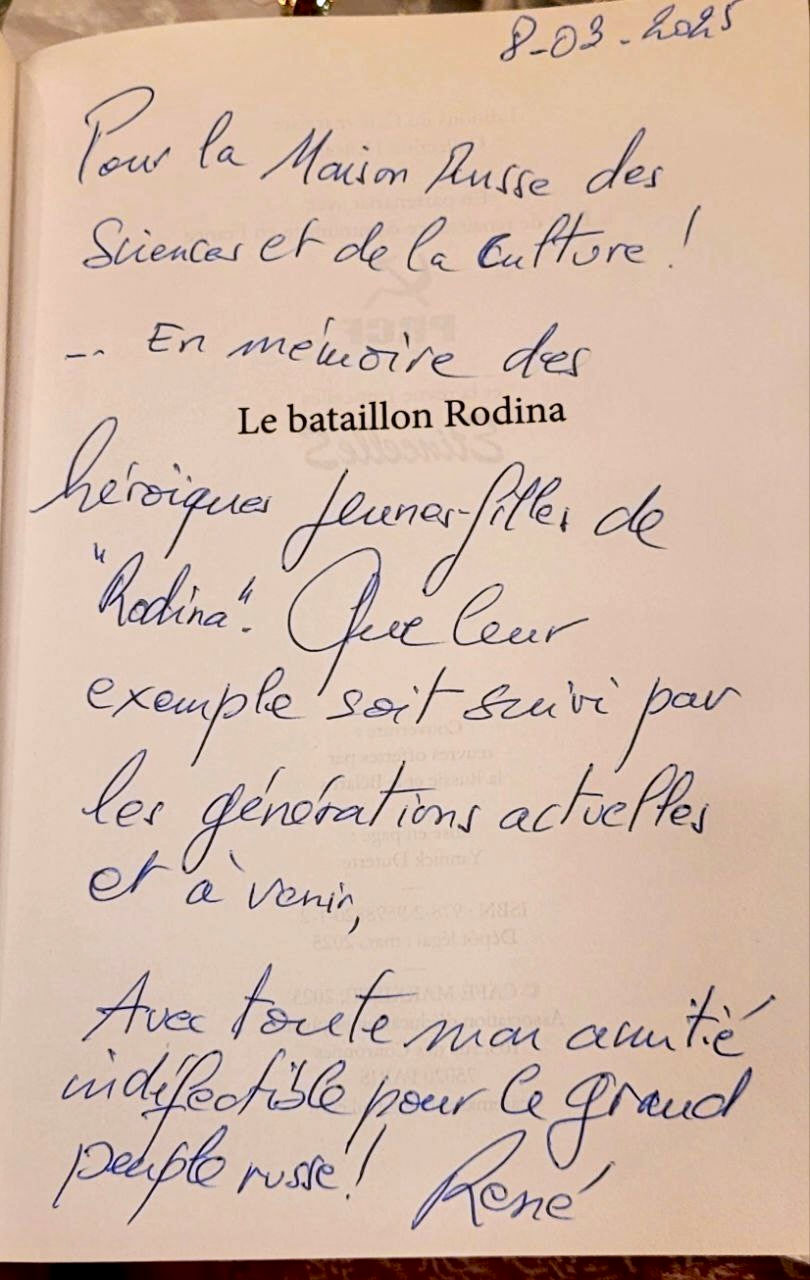 8-03-2025
Pour la Maison Russe des
Sciences et de la Culture !
... En mémoire des
Le bataillon Rodina
héroïques jeunes-filles de
"Rodina". Que leur
exemple soit suivi par
les générations actuelles
et à venir,
Avec toute mon amitié
indéfectible pour le grand
peuple russe !
René